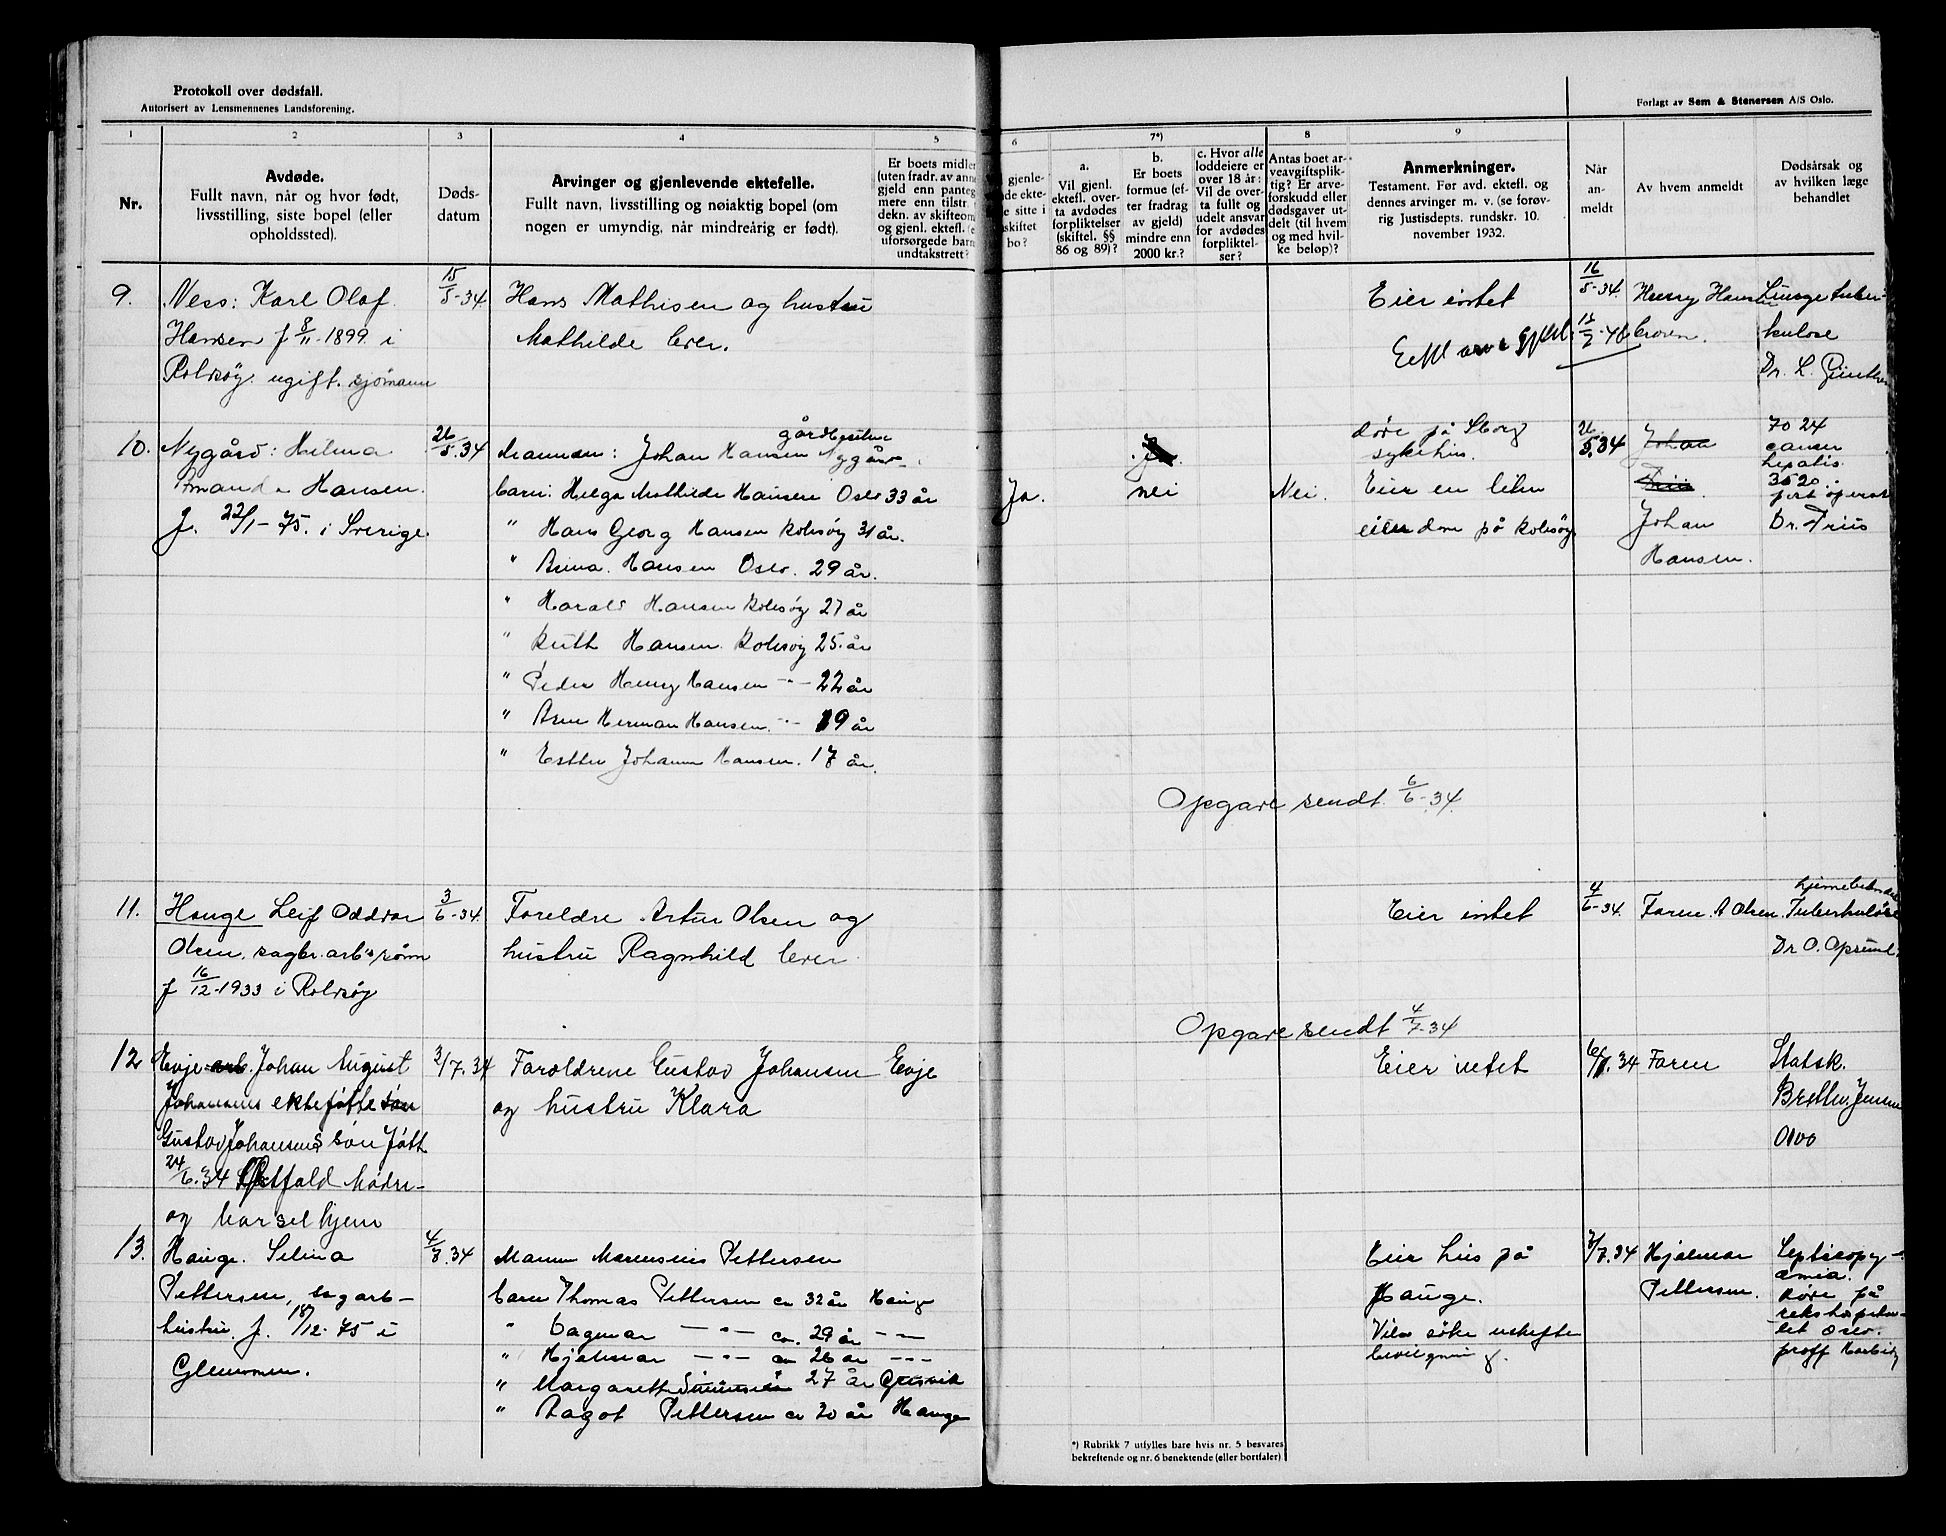 Protokoll over dødsfall.
Autorisert av Lensmennenes Landsforening.
Forlagt av Sem & Stenersen A/S Oslo.
1 2 3 4 5 6 7*) 8 9
Nr.
Avdøde.
Fullt navn, når og hvor født,
livsstilling, siste bopel (eller
opholdssted).
Døds-
datum
Arvinger og gjenlevende ektefelle.
Fullt navn, livsstilling og nøiaktig bopel (om
nogen er umyndig, når mindreårig er født).
Er boets midler
(uten fradr. av ann
gjeld enn panteg
mere enn tilstr.
dekn. av skifteom
og gjenl. ektef. (e
uforsørgede barn
undtakstrett?
gjenle-
de ekte-
e sitte i
skiftet
bo?
a.
Vil gjenl.
ektefl. over-
ta avdødes
forpliktelser
(skiftel. §§
86 og 89)?
b.
Er boets
formue (ef-
ter fradrag
av gjeld)
mindre enn
2000 kr.?
c. Hvor alle
loddeiere er
over 18 år:
Vil de over-
ta fullt og
udelt ansvar
for avdødes
forpliktel-
ser?
Antas boet ar-
veavgiftsplik-
tig? Er arve-
forskudd eller
dødsgaver ut-
delt (til hvem
og med hvil-
ke beløp)?
Anmerkninger.
Testament. Før avd. ektefl. og
dennes arvinger m. v. (se forøv-
rig Justisdepts. rundskr. 10.
november 1932.
Når
an-
meldt
Av hvem anmeldt
Dødsårsak og
av hvilken læge
behandlet
9. Ness: Karl Olaf
Hansen f 8/11-1899 i
Rolvsøy. ugift. sjømann
15/5-34
Hans Mathisen og hustru
Mathilde lever.
Eier intet
16/5-34. Henry Hansen
Lunge tuber-
kulose
Dr. L. Günther
10. Nygård: Helma
Amanda Hansen.
f. 22/1-75. i Sverige.
26/5.34
Mannen: Johan Hansen Nygård
Barn: Helga Mathilde Hansen Oslo 33 år
" Hans Georg Hansen Rolvsøy 31 år.
" Anna. Hansen Oslo. 29 år.
" Harald Hansen Rolvsøy 27 år
" Ruth Hansen. Rolvsøy 25 år
" Peder Henry Hansen -"- 22 år
" Arne Herman Hansen. -"- 19 år
" Esther Johanne Hansen. 17 år.
Ja.
nei
Nei.
døde på Sborg
sykehus.
Eier en liten
eiendom på Rolvsøy
26/5.34
Johan
Friis
Johan
Hansen.
70 24
cancer
hepatis.
3520
Dr. Friis
Opgave sendt 6/6-34.
11. Hauge Leif Oddvar
Olsen, sagbr. arb's sønn
f 16/12-1933 i Rolvsøy
3/6-34.
Foreldre Artur Olsen og
hustru Ragnhild lever.
Eier intet
4/6-34.
Faren. A Olsen.
hjernebetændelse
Tuberkuløse
Dr. O. Opsund
Opgave sendt 4/7-34
12 Evje arb. Johan August
Johansens ektefødte søn
Gustav Johansens søn født
24/6.34 Østfold Mødre-
og barselhjem
3/7.34
Foreldrene Gustav Johansen Evje
og hustru Klara
Eier intet
34 Faren
Statsk.
Bretten. Jensen
13. Hauge. Selma
Pettersen, sagarb-
hustru. f. 18/12-75 i
Glemmen.
4/7.34
Mann Marensius Pettersen
Barn Thomas Pettersen ca 32 år Hauge
" Dagmar -"- ca. 29 år -"-
" Hjalmar -"- ca 26 år -"-
" Margareth 27 år Greåker
" Dagot Pettersen ca 20 år Hauge
Eier hus på
Hauge.
Vil søke uskifte
bevilgning.
7/7.34 Hjalmar
Pettersen.
Septicopy-
æmia.
døde på
rikshospita-
let Oslo.
proff Harbitz
*) Rubrikk 7 utfylles bare hvis nr. 5 besvares
bekreftende og nr. 6 benektende (eller bortfaller)